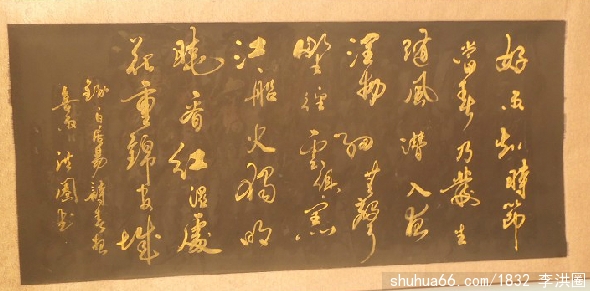 好雨知時節
當春乃發生
隨風潛入夜
潤物細無聲
野徑雲俱黑
江船火獨明
曉看紅濕處
花重錦官城
錄白居易詩春夜
喜雨 洪圈書
shuhua66.com/1832 李洪圈